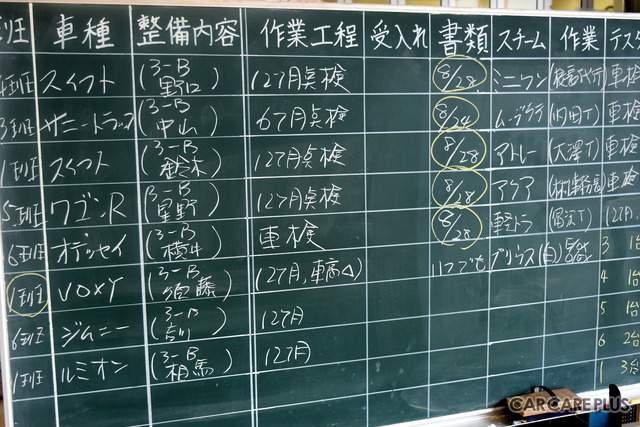 班 車種 整備内容 作業工程 受入れ 書類 スチーム 作業 テスタ
班 スイフト (3-B 野口) 12ヶ月点検 8/28 ミニワン 車検
3班 サニートラック (3-B 中山) 6ヶ月点検 8/24 (内田T) 車検
1班 スイフト (3-B 鈴木) 12ヶ月点検 8/28 アトレー (大澤T) 車検
5班 ワゴンR (3-B 星野) 12ヶ月点検 8/28 アクア 車検
6班 オデッセイ (3-B 横井) 車検 8/28 軽トラ 12ヶ月
1班 VOXY (3-B 須藤) (12ヶ月,車高△) いつでも プリウス(白) 3 1台
6班 ジムニー (3-B 吉川) 12ヶ月 4 1台
1班 ルミオン (3-B 相馬) 12ヶ月 5 1台
6 2台
1 3台
CAR CARE PLUS